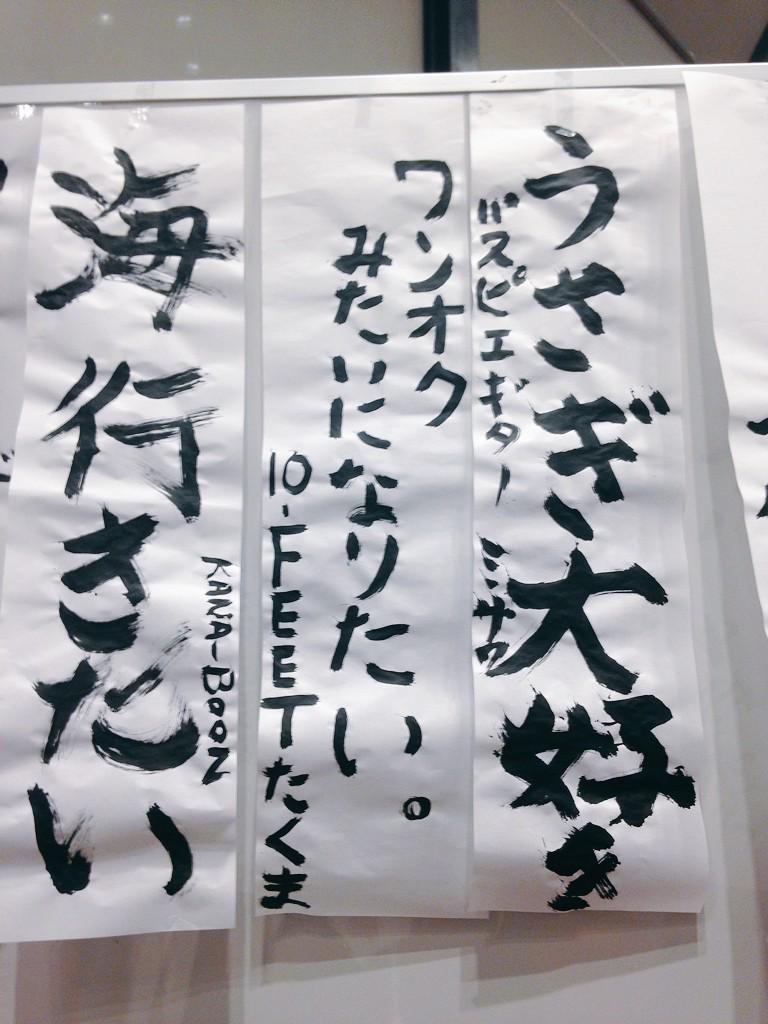 うさぎ大好き
パスピエギター ミサワ
ワンオク
みたいになりたい。
10-FEETたくま
海行きたい
KANA-BOON